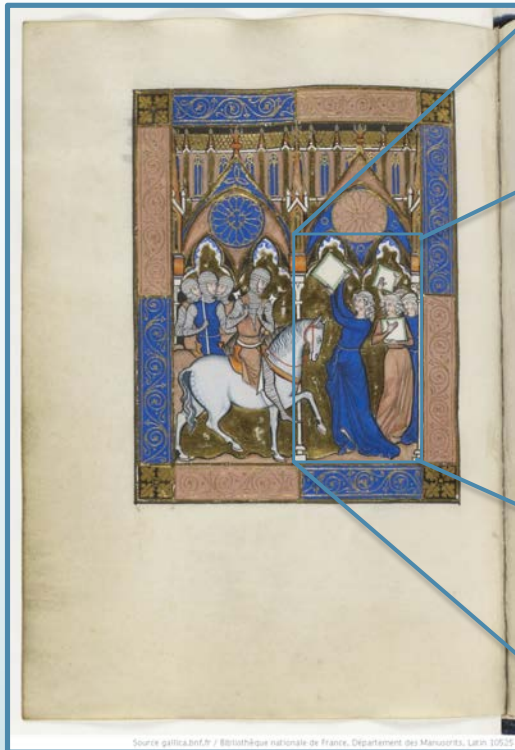 Source gallica.bnf.fr / Bibliothèque nationale de France. Département des Manuscrits. Latin 10525